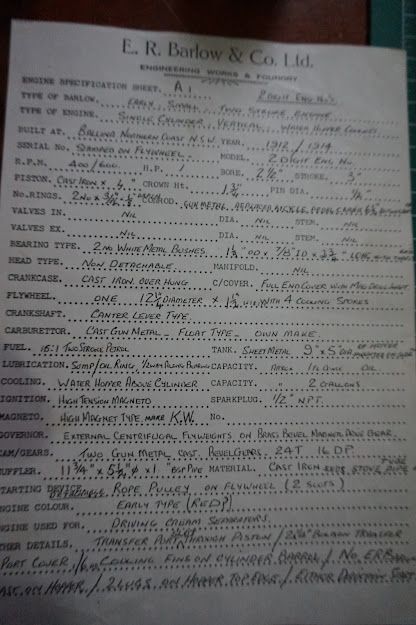 E. R. Barlow & Co. Ltd.
ENGINEERING WORKS & FOUNDRY
ENGINE SPECIFICATION SHEET. A1 2 DIGIT ENG. No's
TYPE OF BARLOW. EARLY SMALL TWO STROKE ENGINE
TYPE OF ENGINE. SINGLE CYLINDER VERTICAL WATER HOPPER COOLED
BUILT AT. BALLINA NORTHERN COAST N.S.W YEAR. 1912 / 1914
SERIAL No. STAMPED ON FLYWHEEL MODEL. 2 DIGIT ENG. No
R.P.M. 400/600 H.P. 1 BORE. 2½" STROKE. 3"
PISTON. CAST IRON x 4" CROWN Ht. 1¾" PIN DIA.
No.RINGS. 2 No x CONROD. GUN METAL
VALVES IN. NIL DIA. NIL STEM. NIL
VALVES EX. NIL DIA. NIL STEM. NIL
BEARING TYPE. 2 No WHITE METAL BUSHES 1½" OD x 7/8" ID x LONG
HEAD TYPE. NON DETACHABLE MANIFOLD. NIL
CRANKCASE. CAST IRON OVER HUNG C/COVER. FULL END COVER WITH MAG DRIVE SHAFT
FLYWHEEL. ONE DIAMETER x WITH 4 COOLING SPOKES
CRANKSHAFT. CANTER LEVER TYPE
CARBURETTOR. CAST GUN METAL - FLOAT TYPE - OWN MAKE
FUEL. 16:1 TWO STROKE PETROL TANK. SHEET METAL 9" x 5" DIA
LUBRICATION. SUMP/OIL RING CAPACITY. OIL
COOLING. WATER HOPPER ABOVE CYLINDER CAPACITY. 2 GALLONS
IGNITION. HIGH TENSION MAGNETO SPARKPLUG. ½" NPT.
MAGNETO. HIGH MAGNET TYPE MAKE K.W. No.
GOVERNOR. EXTERNAL CENTRIFUGAL FLYWEIGHTS ON BRASS BEVEL MAGNETO DRIVE GEAR
CAM/GEARS. TWO GUN METAL CAST BEVEL GEARS 24T 16 DP
MUFFLER. 11¾" x 5¼" Ø x 1" BSP PIPE MATERIAL. CAST IRON
STARTING DEVICE. DETACHABLE ROPE PULLEY ON FLYWHEEL (2 SLOTS)
ENGINE COLOUR. EARLY TYPE (RED?)
ENGINE USED FOR. DRIVING CREAM SEPARATORS
OTHER DETAILS. TRANSFER PORT THROUGH PISTON / TRANSFER
PORT COVER / COOLING FINS ON CYLINDER BARREL / No E.R BARLOW
CAST ON HOPPER / 2 LUGS ON HOPPER TOP EDGE / EITHER DIRECTION START